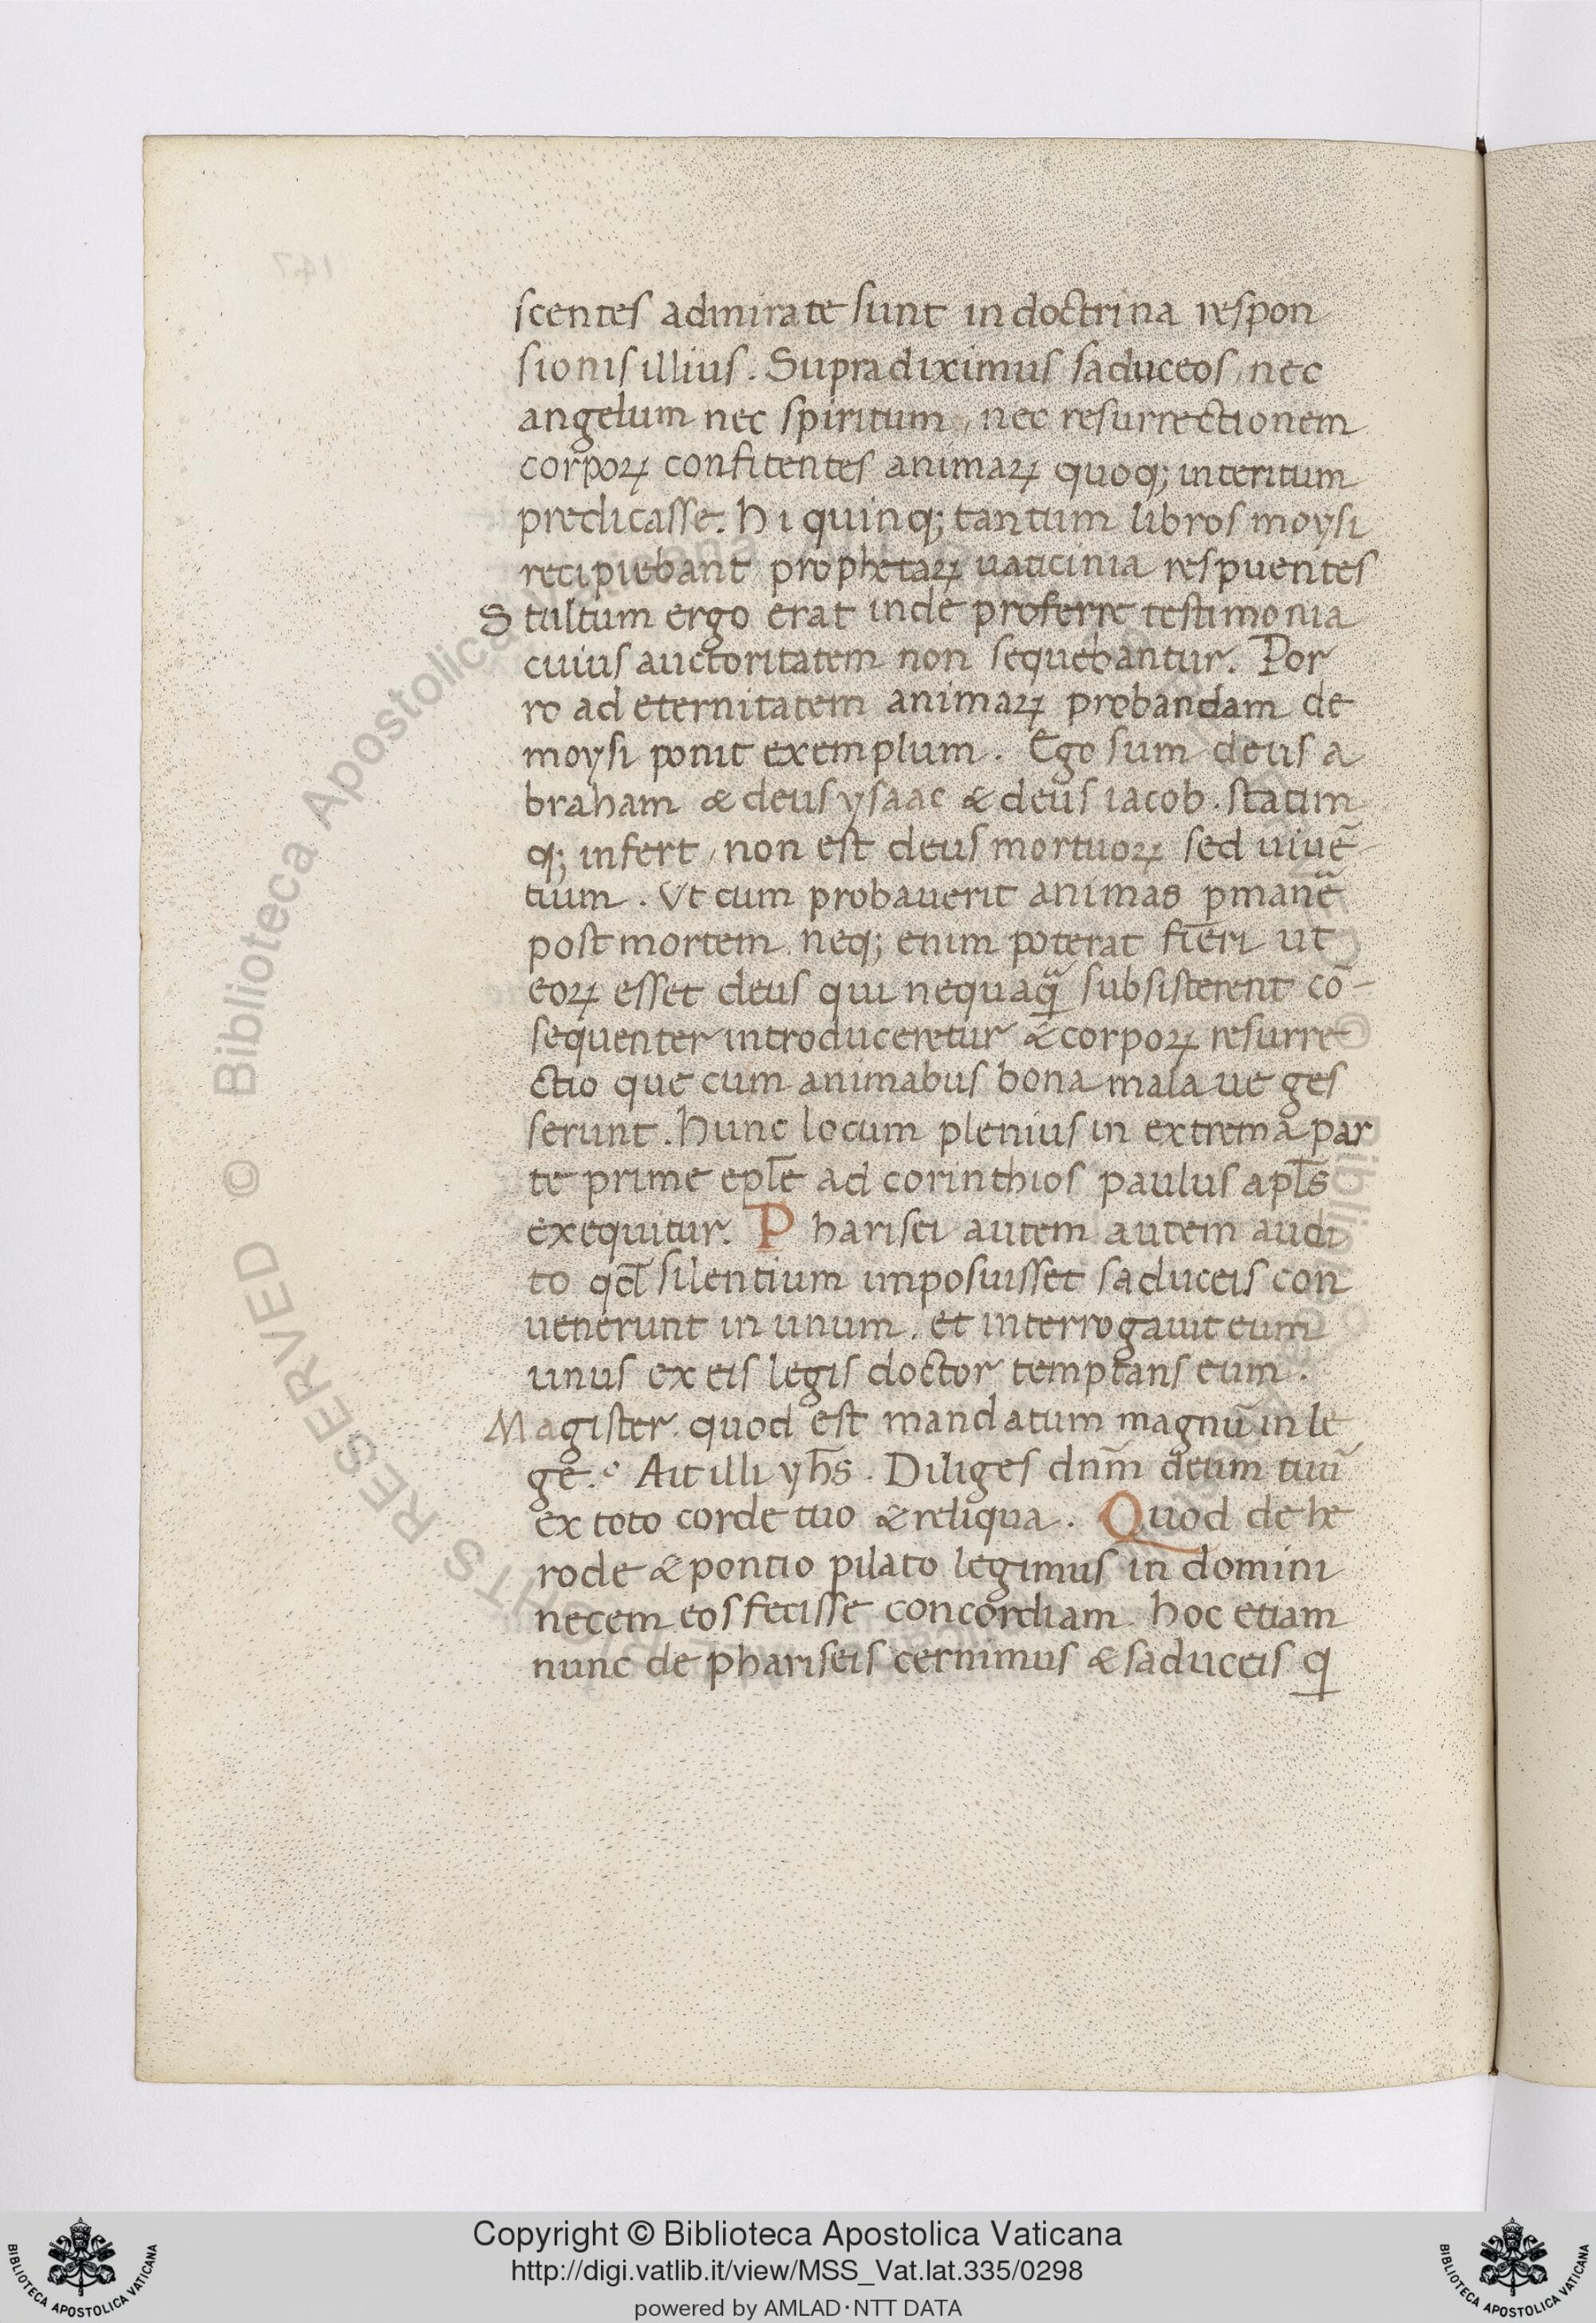 scentes admirate sunt in doctrina respon
sionis illius. Supra diximus saduceos, nec
angelum nec spiritum, nec resurrectionem
corpoꝝ confitentes animaꝝ quoq; interitum
predicasse. hi quinq; tantum libros moysi
recipiebant prophetaꝝ uaticinia respuentes
Stultum ergo erat inde proferre testimonia
cuius auctoritatem non sequebantur. Por
ro ad eternitatem animaꝝ probandam de
moysi ponit exemplum. Ego sum deus a
braham & deus ysaac & deus iacob. statim
q; infert, non est deus mortuoꝝ sed uiuē-
tium. Vt cum probauerit animas pmanē
post mortem. neq; enim poterat fieri ut
eoꝝ esset deus qui nequaq̃ subsisterent cō-
sequenter introduceretur & corpoꝝ resurre
ctio que cum animabus bona mala ue ges
serunt. hunc locum plenius in extrema par
te prime epl̄e ad corinthios paulus apl̄s
exequitur. Pharisei autem autem audi
to qđ silentium imposuisset saduceis con
uenerunt in unum. et interrogauit eum
unus ex eis legis doctor temptans eum.
Magister. quod est mandatum magnū in le
ge? Ait illi yh̄s. Diliges dnm̄ deum tuū
ex toto corde tuo & reliqua. Quod de he
rode & pontio pilato legimus in domini
necem eos fecisse concordiam. hoc etiam
nunc de phariseis cernimus & saduceis ꝗ
147
© Biblioteca Apostolica Vaticana
RIGHTS RESERVED
Copyright © Biblioteca Apostolica Vaticana
http://digi.vatlib.it/view/MSS_Vat.lat.335/0298
powered by AMLAD·NTT DATA
BIBLIOTECA APOSTOLICA VATICANA
BIBLIOTECA APOSTOLICA VATICANA